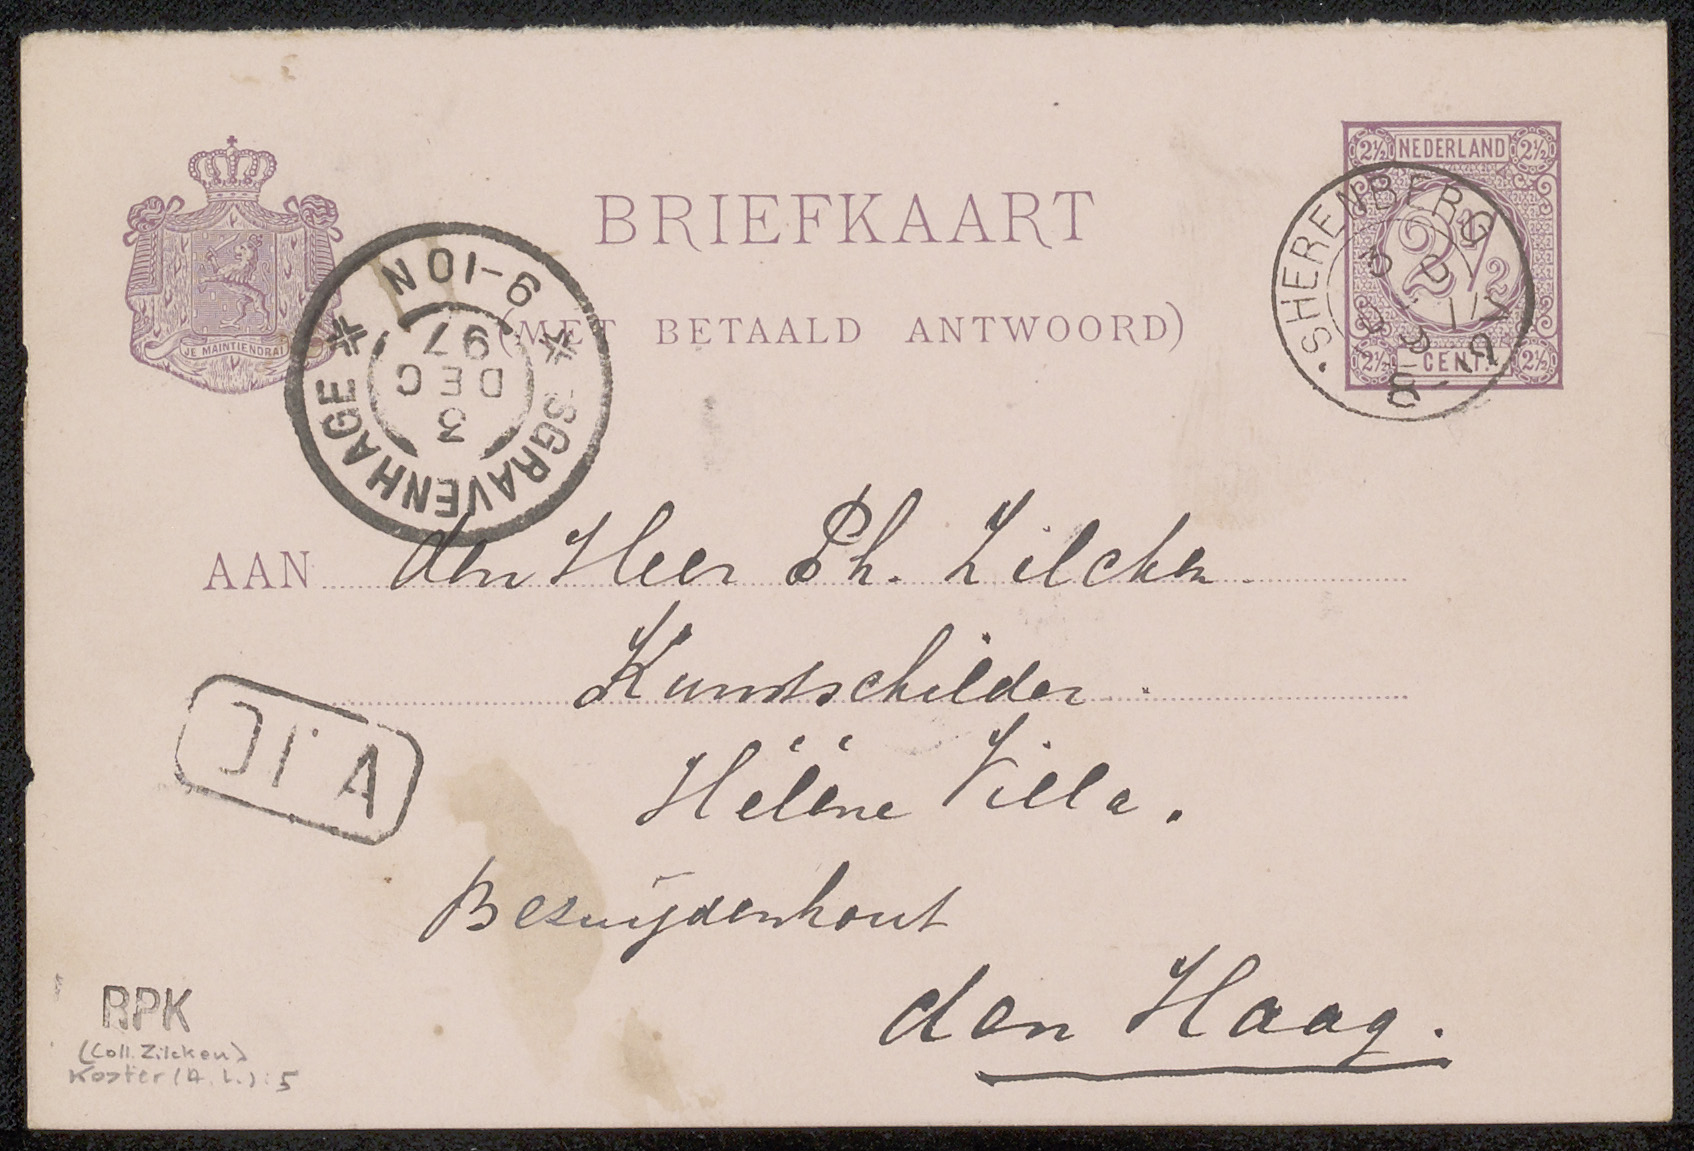 BRIEFKAART
(MET BETAALD ANTWOORD)
JE MAINTIENDRAI
NEDERLAND
2½ 2½
2½
CENT
2½ 2½
·SHERENBERG
'SGRAVENHAGE
9-10N
3
DEC
97
AAN den Heer Ph. Zilcken
Kunstschilder.
Hélène Villa.
Bezuijdenhout
den Haag.
RPK
(Coll. Zilcken)
Koster (A. L.): 5